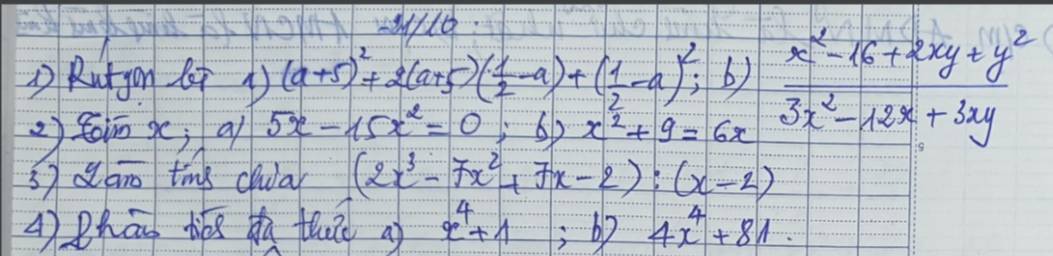 21/10:
1) Rút gọn bt a) (a+5)² + 2(a+5)(1/2 - a) + (1/2 - a)²; b) (x² - 16 + 2xy + y²)/(3x² - 12x + 3xy)
2) Tìm x; a) 5x - 15x² = 0; b) x² + 9 = 6x
3) Làm tính chia (2x³ - 7x² + 7x - 2) : (x - 2)
4) Phân tích đa thức a) x⁴ + 1 ; b) 4x⁴ + 81.